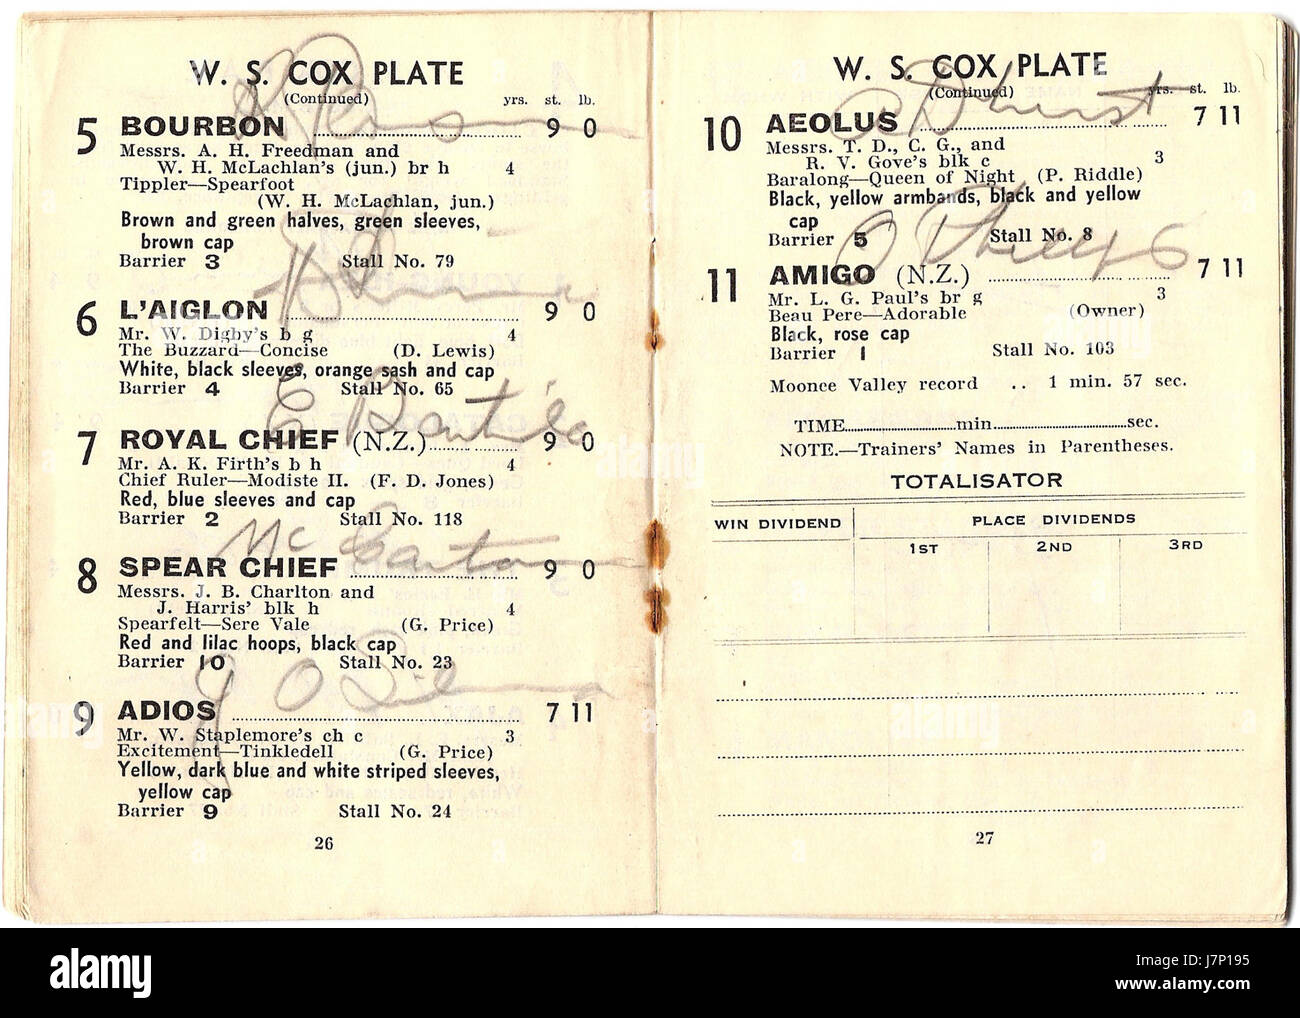 W. S. COX PLATE
(Continued)
yrs. st. lb.
5 BOURBON 9 0
Messrs. A. H. Freedman and
W. H. McLachlan's (jun.) br h 4
Tippler—Spearfoot
(W. H. McLachlan, jun.)
Brown and green halves, green sleeves,
brown cap
Barrier 3 Stall No. 79
6 L'AIGLON 9 0
Mr. W. Digby's b g 4
The Buzzard—Concise (D. Lewis)
White, black sleeves, orange sash and cap
Barrier 4 Stall No. 65
E
7 ROYAL CHIEF (N.Z.) 9 0
Mr. A. K. Firth's b h 4
Chief Ruler—Modiste II. (F. D. Jones)
Red, blue sleeves and cap
Barrier 2 Stall No. 118
Mc Carten
8 SPEAR CHIEF 9 0
Messrs. J. B. Charlton and
J. Harris' blk h 4
Spearfelt—Sere Vale (G. Price)
Red and lilac hoops, black cap
Barrier 10 Stall No. 23
9 ADIOS 7 11
Mr. W. Staplemore's ch c 3
Excitement—Tinkledell (G. Price)
Yellow, dark blue and white striped sleeves,
yellow cap
Barrier 9 Stall No. 24
26
W. S. COX PLATE
(Continued)
yrs. st. lb.
10 AEOLUS 7 11
Messrs. T. D., C. G., and
R. V. Gove's blk c 3
Baralong—Queen of Night (P. Riddle)
Black, yellow armbands, black and yellow
cap
Barrier 5 Stall No. 8
O Phillips
11 AMIGO (N.Z.) 7 11
Mr. L. G. Paul's br g 3
Beau Pere—Adorable (Owner)
Black, rose cap
Barrier 1 Stall No. 103
Moonee Valley record .. 1 min. 57 sec.
TIME min. sec.
NOTE.—Trainers' Names in Parentheses.
TOTALISATOR
WIN DIVIDEND PLACE DIVIDENDS
1ST 2ND 3RD
27
alamy
Image ID: J7P195
www.alamy.com